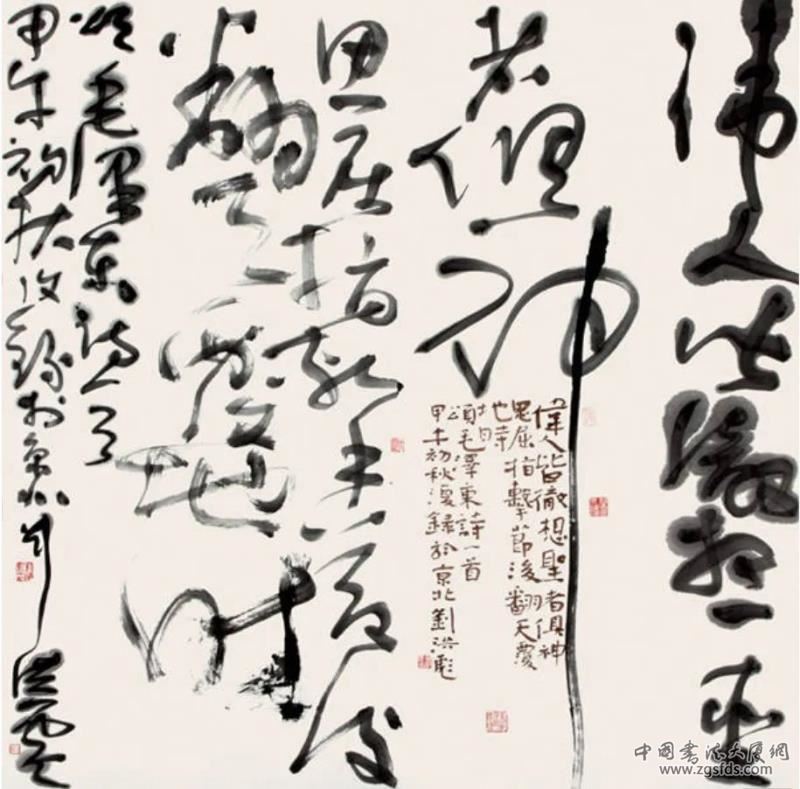 偉人皆徹想聖
者俱神
思屈指擊節後
翻天覆地時
頌毛澤東詩一首
甲午初秋漫錄於京北劉洪彪
偉人皆徹想聖者俱神
思屈指擊節後翻天覆
地時
頌毛澤東詩一首
甲午初秋漫錄於京北劉洪彪
中國書法大廈網
www.zgsfds.com